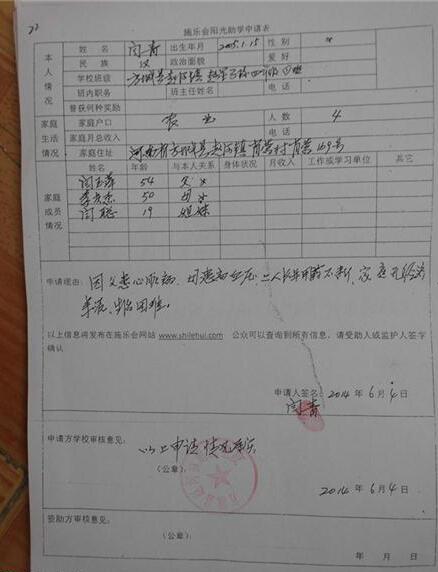 施乐会阳光助学申请表
本人情况 姓名 闫青 出生年月 2005.1.15 性别 女
民族 汉 政治面貌 爱好
学校班级 方城县赵河镇
班内职务 班主任姓名 电话
曾获何种奖励
家庭生活情况 家庭户口 农业 人数 4
家庭月总收入 电话
家庭住址 河南省方城县赵河镇 村 169号
家庭成员情况 姓名 年龄 与本人关系 身体状况 月收入 工作或学习单位 其它
闫玉 54 父女
李 50 母女
闫聪 19 姐妹
申请理由:因父患心脏病,母患高血压,二人长年用药不断,家庭
,生活困难。
以上信息将发布在施乐会网站 www.shilehui.com 公众可以查询到所有信息,请受助人或监护人签字
确认
申请人签名: 2014年6月4日
闫青
申请方学校审核意见:
以上申请情况属实
(公章)
2014年6月4日
资助方审核意见:
(公章)
年 月 日